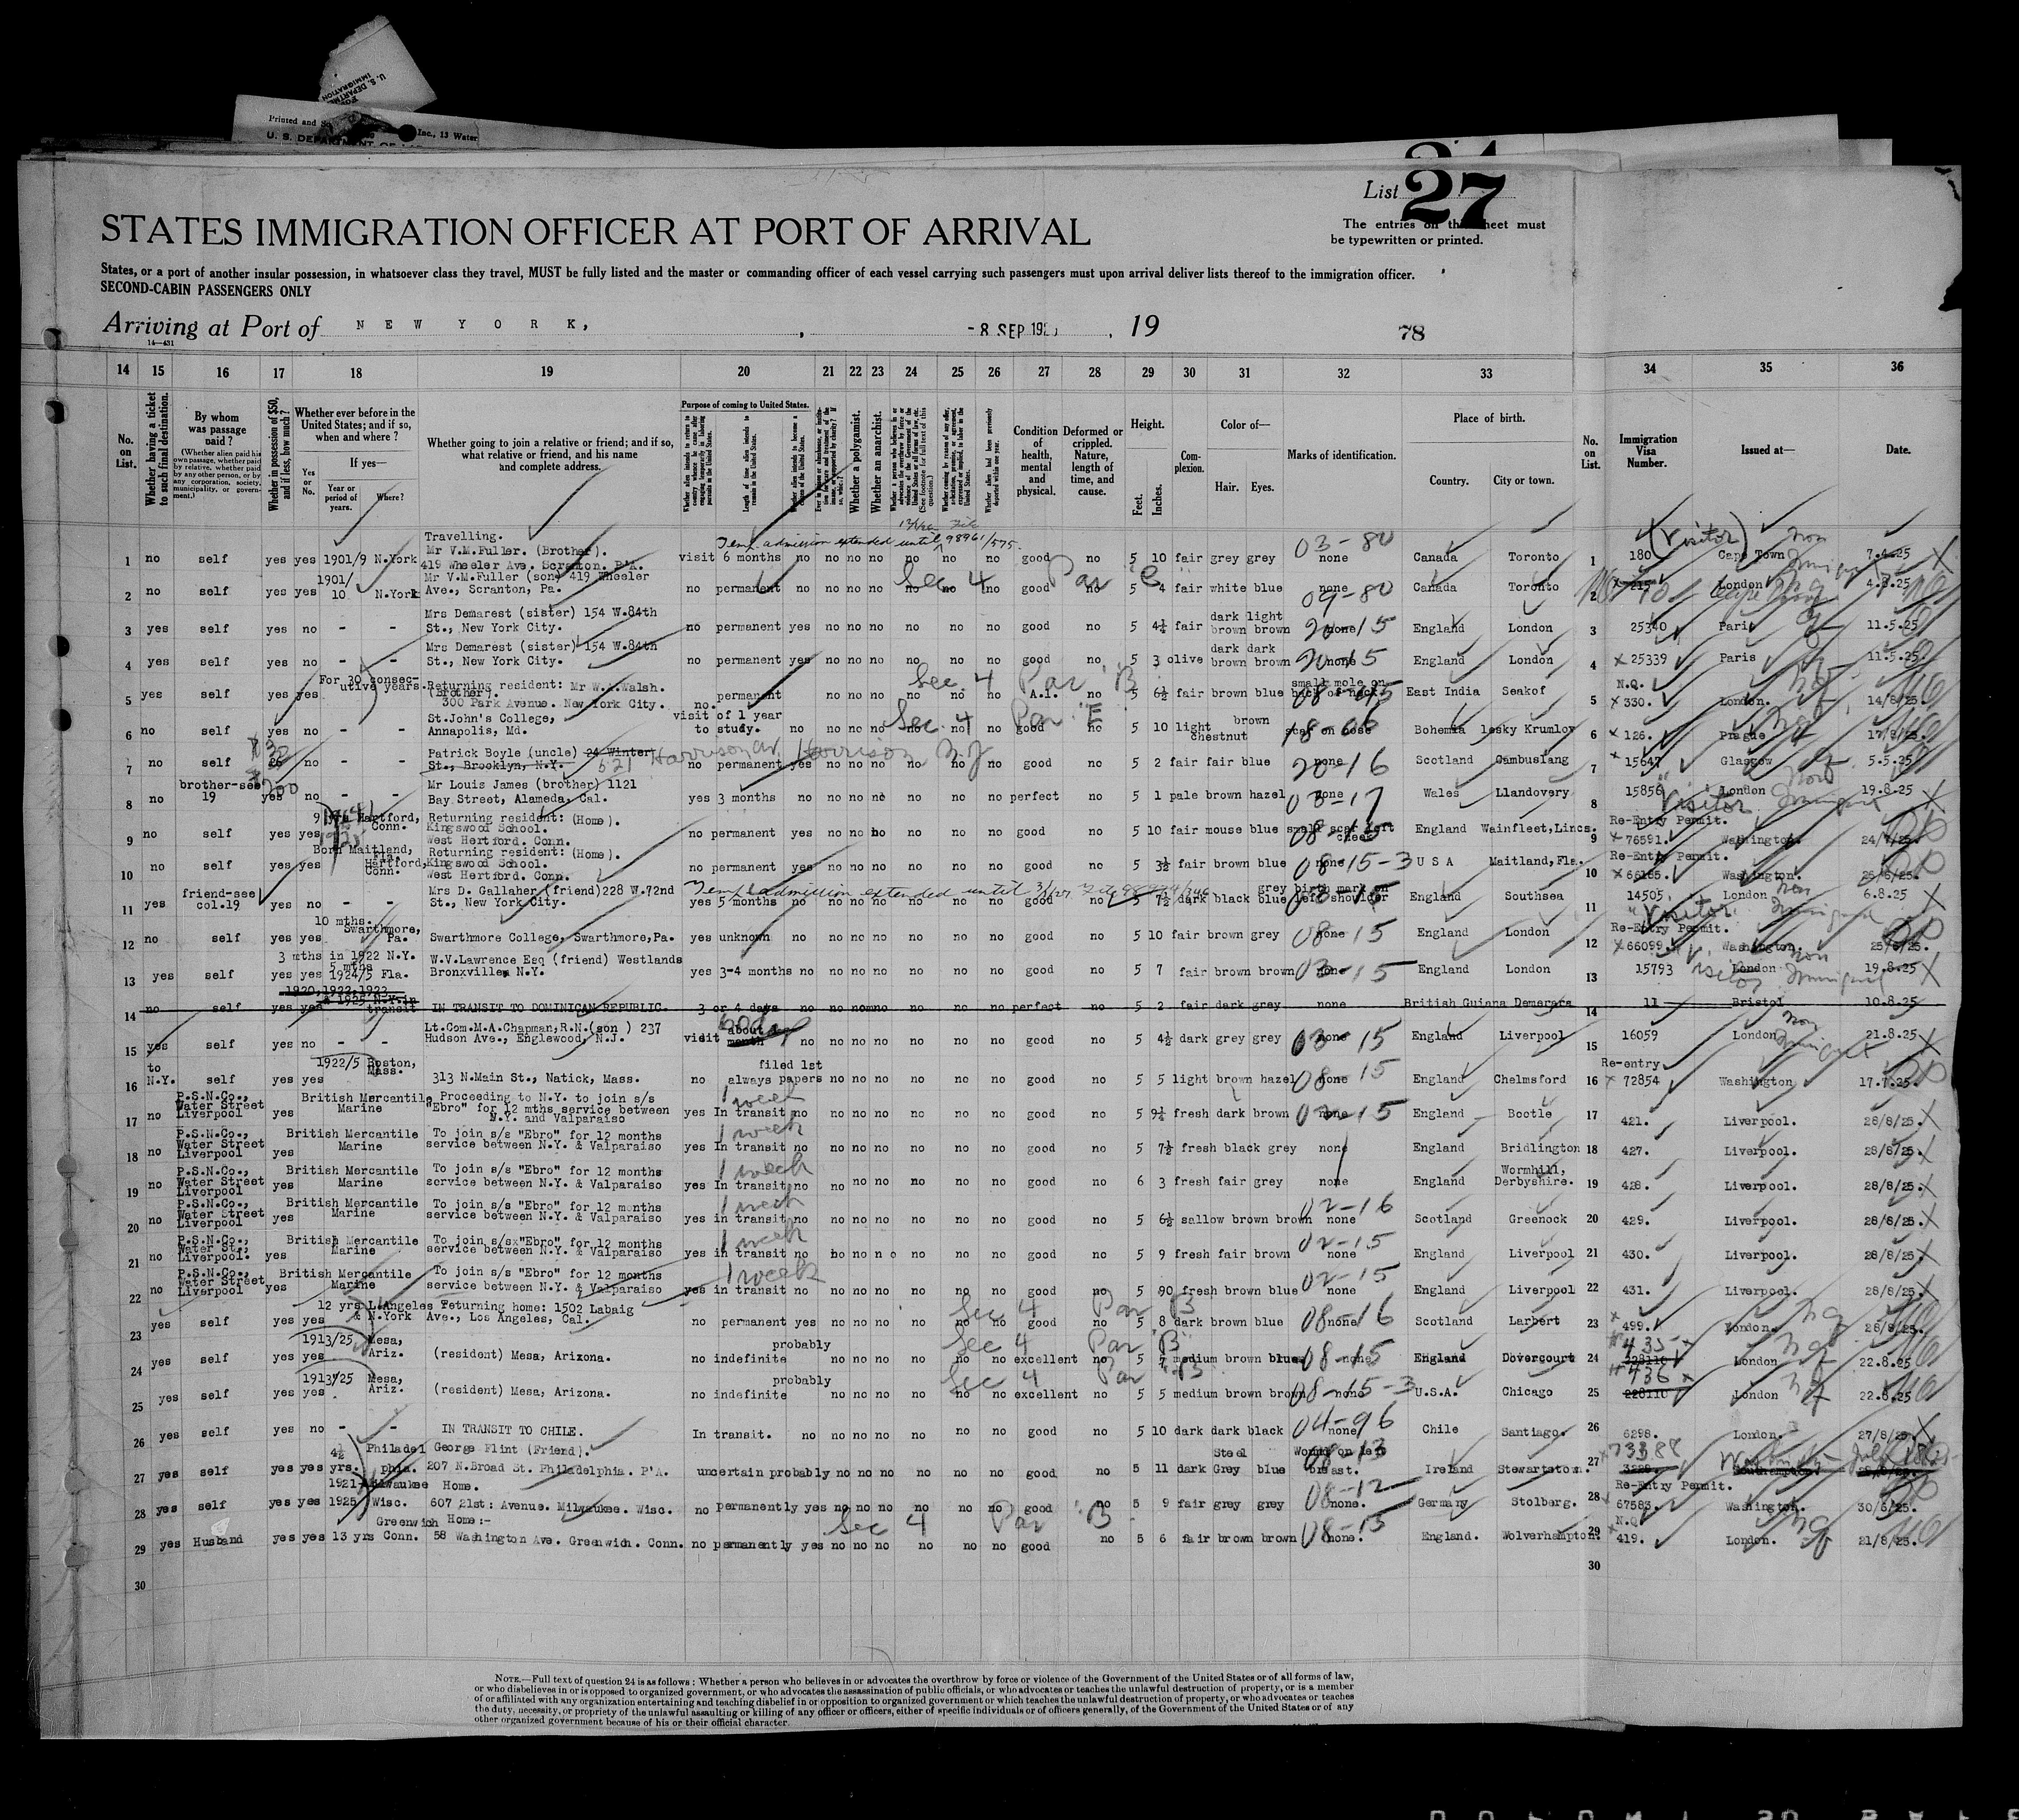 U. S. DEPARTME
IMMIGRATION
Printed and
Inc., 13 Water
U. S. DEPARTMENT OF
List 27
STATES IMMIGRATION OFFICER AT PORT OF ARRIVAL
The entries on this sheet must
be typewritten or printed.
States, or a port of another insular possession, in whatsoever class they travel, MUST be fully listed and the master or commanding officer of each vessel carrying such passengers must upon arrival deliver lists thereof to the immigration officer.
SECOND-CABIN PASSENGERS ONLY
Arriving at Port of NEW YORK, -8 SEP 192 , 19 78
14—431
14 15 16 17 18 19 20 21 22 23 24 25 26 27 28 29 30 31 32 33 34 35 36
No. on List.
Whether having a ticket to such final destination.
By whom was passage paid?
(Whether alien paid his own passage, whether paid by relative, whether paid by any other person, or by any corporation, society, municipality, or government.)
Whether in possession of $50, and if less, how much?
Whether ever before in the United States; and if so, when and where?
Yes or No.
If yes—
Year or period of years.
Where?
Whether going to join a relative or friend; and if so, what relative or friend, and his name and complete address.
Purpose of coming to United States.
Length of time alien intends to remain in the United States.
Whether a polygamist.
Whether an anarchist.
Condition of health, mental and physical.
Deformed or crippled. Nature, length of time, and cause.
Height.
Feet. Inches.
Complexion.
Color of—
Hair. Eyes.
Marks of identification.
Place of birth.
Country. City or town.
No. on List.
Immigration Visa Number.
Issued at—
Date.
Temp. admission extended until 98961/575
Travelling.
Mr V.M.Fuller. (Brother).
1 no self yes yes 1901/9 N.York 419 Wheeler Ave. Scranton. P'A. visit 6 months no no no no no no good no 5 10 fair grey grey none 03-80 Canada Toronto 1 180 (Visitor) Cape Town 7.4.25
1901/ Mr V.M.Fuller (son) 419 Wheeler
2 no self yes yes 10 N.York Ave., Scranton, Pa. no permanent no no no no no no good no 5 4 fair white blue none 09-80 Canada Toronto 2 London 4.8.25
Sec 4 Par "C"
Mrs Demarest (sister) 154 W.84th
3 yes self yes no - - St., New York City. no permanent yes no no no no no no good no 5 4½ fair dark brown light brown none 20-15 England London 3 25340 Paris 11.5.25
Mrs Demarest (sister) 154 W.84th
4 yes self yes no - - St., New York City. no permanent yes no no no no no no good no 5 3 olive dark brown dark brown none 20-15 England London 4 25339 Paris 11.5.25
Sec 4 Par "B"
For 30 consecutive years. Returning resident: Mr W.A.Walsh.
(Brother).
5 yes self yes yes 300 Park Avenue. New York City. no. permanent no no no no no no A.1. no 5 6½ fair brown blue small mole on back of neck 08-15 East India Seakof 5 N.Q. 330. London. 14/8/25.
Sec. 4 Par "E"
St.John's College,
6 no self yes no - - Annapolis, Md. visit of 1 year to study. no no no no no no no good no 5 10 light chestnut brown scar on nose 18-06 Bohemia lesky Krumlov 6 126. Prague 17/8/25.
Patrick Boyle (uncle) 24 Winter
7 no self no - - St., Brooklyn, N.Y. 621 Harrison av. Harrison N.J. no permanent yes no no no no no no good no 5 2 fair fair blue none 20-16 Scotland Cambuslang 7 15647 Glasgow 5.5.25
Mr Louis James (brother) 1121
8 no brother-see 19 yes no - - Bay Street, Alameda, Cal. yes 3 months no no no no no no no perfect no 5 1 pale brown hazel none 03-17 Wales Llandovery 8 15856 "Visitor" London 19.8.25
Hartford, Conn. Returning resident: (Home).
9 no self yes yes Kingswood School. West Hertford. Conn. no permanent yes no no no no no no good no 5 10 fair mouse blue small scar left cheek 08-15 England Wainfleet,Lincs. 9 Re-Entry Permit. 76591. Washington. 24/7/25.
Born Maitland, Fla. Hertford, Conn. Returning resident: (Home).
10 no self yes yes Kingswood School. West Hertford. Conn. no permanent yes no no no no no no good no 5 3½ fair brown blue none 08-15-3 U S A Maitland, Fla. 10 Re-Entry Permit. 66165. Washington.
Temp admission extended until
Mrs D. Gallaher (friend)228 W.72nd
11 yes friend-see col.19 yes no - - St., New York City. yes 5 months no no no no no no no good no 5 7½ dark black blue grey birth mark on left shoulder 03-15 England Southsea 11 14505 "Visitor" London 6.8.25
12 no self yes yes 10 mths. Swarthmore, Pa. Swarthmore College, Swarthmore,Pa. yes unknown no no no no no no no good no 5 10 fair brown grey 08-15 England London 12 Re-Entry Permit. 66099. Washington. 25/6/25.
3 mths in 1922 N.Y. W.V.Lawrence Esq (friend) Westlands
13 yes self yes yes 5 mths 1924/5 Fla. Bronxville, N.Y. yes 3-4 months no no no no no no no good no 5 7 fair brown brown none 03-15 England London 13 15793 Visitor London 19.8.25
1920,1922,1923
14 no self yes yes & 1925 N.Y.in transit IN TRANSIT TO DOMINICAN REPUBLIC 3 or 4 days no no no no no no no perfect no 5 2 fair dark grey none British Guiana Demerara 14 11 Bristol 10.8.25
Lt.Com.M.A.Chapman,R.N.(son ) 237
15 yes self yes no - - Hudson Ave., Englewood, N.J. visit about month no no no no no no no good no 5 4½ dark grey grey none 03-15 England Liverpool 15 16059 London 21.8.25
16 to N.Y. self yes yes 1922/5 Boston, Mass. 313 N.Main St., Natick, Mass. no always filed 1st papers no no no no no no good no 5 5 light brown hazel none 08-15 England Chelmsford 16 Re-entry 72854 Washington 17.7.25.
17 no P.S.N.Co., Water Street Liverpool yes British Mercantile Marine Proceeding to N.Y. to join s/s "Ebro" for 12 mths service between N.Y. and Valparaiso yes In transit 1 week no no no no no no no good no 5 9½ fresh dark brown none 02-15 England Bootle 17 421. Liverpool. 28/8/25.
18 no P.S.N.Co., Water Street Liverpool yes British Mercantile Marine To join s/s "Ebro" for 12 months service between N.Y. & Valparaiso yes In transit 1 week no no no no no no no good no 5 7½ fresh black grey none England Bridlington 18 427. Liverpool. 28/8/25
19 no P.S.N.Co., Water Street Liverpool yes British Mercantile Marine To join s/s "Ebro" for 12 months service between N.Y. & Valparaiso yes In transit 1 week no no no no no no no good no 6 3 fresh fair grey none England Wormhill, Derbyshire. 19 428. Liverpool. 28/8/25.
20 no P.S.N.Co., Water Street Liverpool yes British Mercantile Marine To join s/s "Ebro" for 12 months service between N.Y. & Valparaiso yes in transit 1 week no no no no no no no good no 5 6½ sallow brown brown none 02-16 Scotland Greenock 20 429. Liverpool. 28/8/25.
21 no P.S.N.Co., Water St., Liverpool. yes British Mercantile Marine To join s/sx"Ebro" for 12 months service between N.Y. & Valparaiso yes in transit 1 week no no no no no no no good no 5 9 fresh fair brown none 02-15 England Liverpool 21 430. Liverpool. 28/8/25.
22 no P.S.N.Co., Water Street Liverpool yes British Mercantile Marine To join s/s "Ebro" for 12 months service between N.Y. & Valparaiso yes in transit 1 week no no no no no no no good no 5 90 fresh brown blue none 02-15 England Liverpool 22 431. Liverpool. 28/8/25.
Sec 4 Par B
23 yes self yes yes 12 yrs L.Angeles & N.York returning home: 1502 Labaig Ave., Los Angeles, Cal. no permanent yes no no no no no no good no 5 8 dark brown blue none 08-16 Scotland Larbert 23 499. London. 26/8/25.
Sec 4 Par "B"
24 yes self yes yes 1913/25 Mesa, Ariz. (resident) Mesa, Arizona. no indefinite probably no no no no no no excellent no 5 medium brown blue none 08-15 England Dovercourt 24 #435 London 22.8.25
Sec 4 Par "B"
25 yes self yes yes 1913/25 Mesa, Ariz. (resident) Mesa, Arizona. no indefinite probably no no no no no no excellent no 5 5 medium brown brown none 08-15-3 U.S.A. Chicago 25 #436 228110 London 22.8.25
26 yes self yes no - - IN TRANSIT TO CHILE. In transit. no no no no no no no good no 5 10 dark dark black none 04-96 Chile Santiago. 26 6298. London. 27/8/25.
27 yes self yes yes 4½ yrs. Philadelphia. George Flint (Friend). 207 N.Broad St. Philadelphia. P'A. uncertain probably no no no no no no good no 5 11 dark Steel Grey blue Wound on left breast. Ireland Stewartstown. 27 73388 Southampton
28 yes self yes yes 1921-1925 Milwaukee Wisc. Home. 607 21st: Avenue. Milwaukee. Wisc. no permanently yes no no no no no no good no 5 9 fair grey grey none. 08-12 Germany Stolberg. 28 Re-Entry Permit. 67583. Washington. 30/6/25.
Sec 4 Par "B"
29 yes Husband yes yes 13 yrs Greenwich Conn. Home:- 58 Washington Ave. Greenwich. Conn. no permanently yes no no no no no no good no 5 6 fair brown brown none. 08-15 England. Wolverhampton. 29 N.Q. 419. London. 21/8/25.
30 30
NOTE.—Full text of question 24 is as follows: Whether a person who believes in or advocates the overthrow by force or violence of the Government of the United States or of all forms of law,
or who disbelieves in or is opposed to organized government, or who advocates the assassination of public officials, or who advocates or teaches the unlawful destruction of property, or is a member
of or affiliated with any organization entertaining and teaching disbelief in or opposition to organized government or which teaches the unlawful destruction of property, or who advocates or teaches
the duty, necessity, or propriety of the unlawful assaulting or killing of any officer or officers, either of specific individuals or of officers generally, of the Government of the United States or of any
other organized government because of his or their official character.